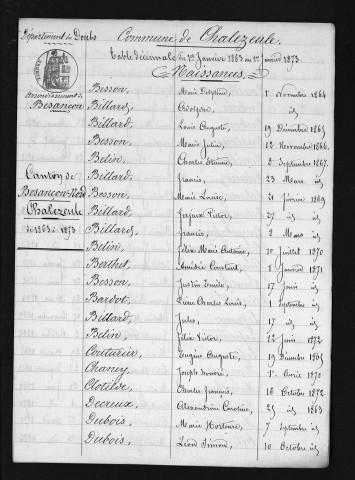 Département du Doubs
Commune de Chalezeule.
Table décennale du 1er Janvier 1863 au 1er Janvier 1873.
Naissances.
Arrondissement de
Besançon
Canton de
Besançon-Nord
Chalezeule
de 1863 à 1873
Besson, Marie Delphine, 1 Novembre 1864
Billard, Adolphe,
Billard, Louis Auguste, 19 Décembre 1865
Besson, Marie Julie, 12 Novembre 1866.
Belin, Charles Etienne, 2 Septembre 1867.
Billard, Francis, 23 Mars id
Besson, Marie Louise, 21 Février 1869
Billard, Victor, 27 id id
Billard, Francis, 2 Mars id
Belin, Félix Marie Antoine, 20 Juillet 1870
Berthet, Amédée Constant, 1 Janvier 1871
Besson, Justin Emile, 17 Juin id
Bardot, Charles Louis, 1 Septembre id
Billard, Jules, 17 id id
Belin, Félix Victor, 12 Juin 1872
Couturier, Eugène Auguste, 19 Décembre 1865
Chaney, Joseph Honoré, 1er Avril 1870
Clotilde, Charles François, 16 Octobre 1872
Decreux, Alexandrine Caroline, 25 id 1863
Dubois, Marie Hortense, 7 Septembre id
Dubois, Léon Simon, 10 Octobre id